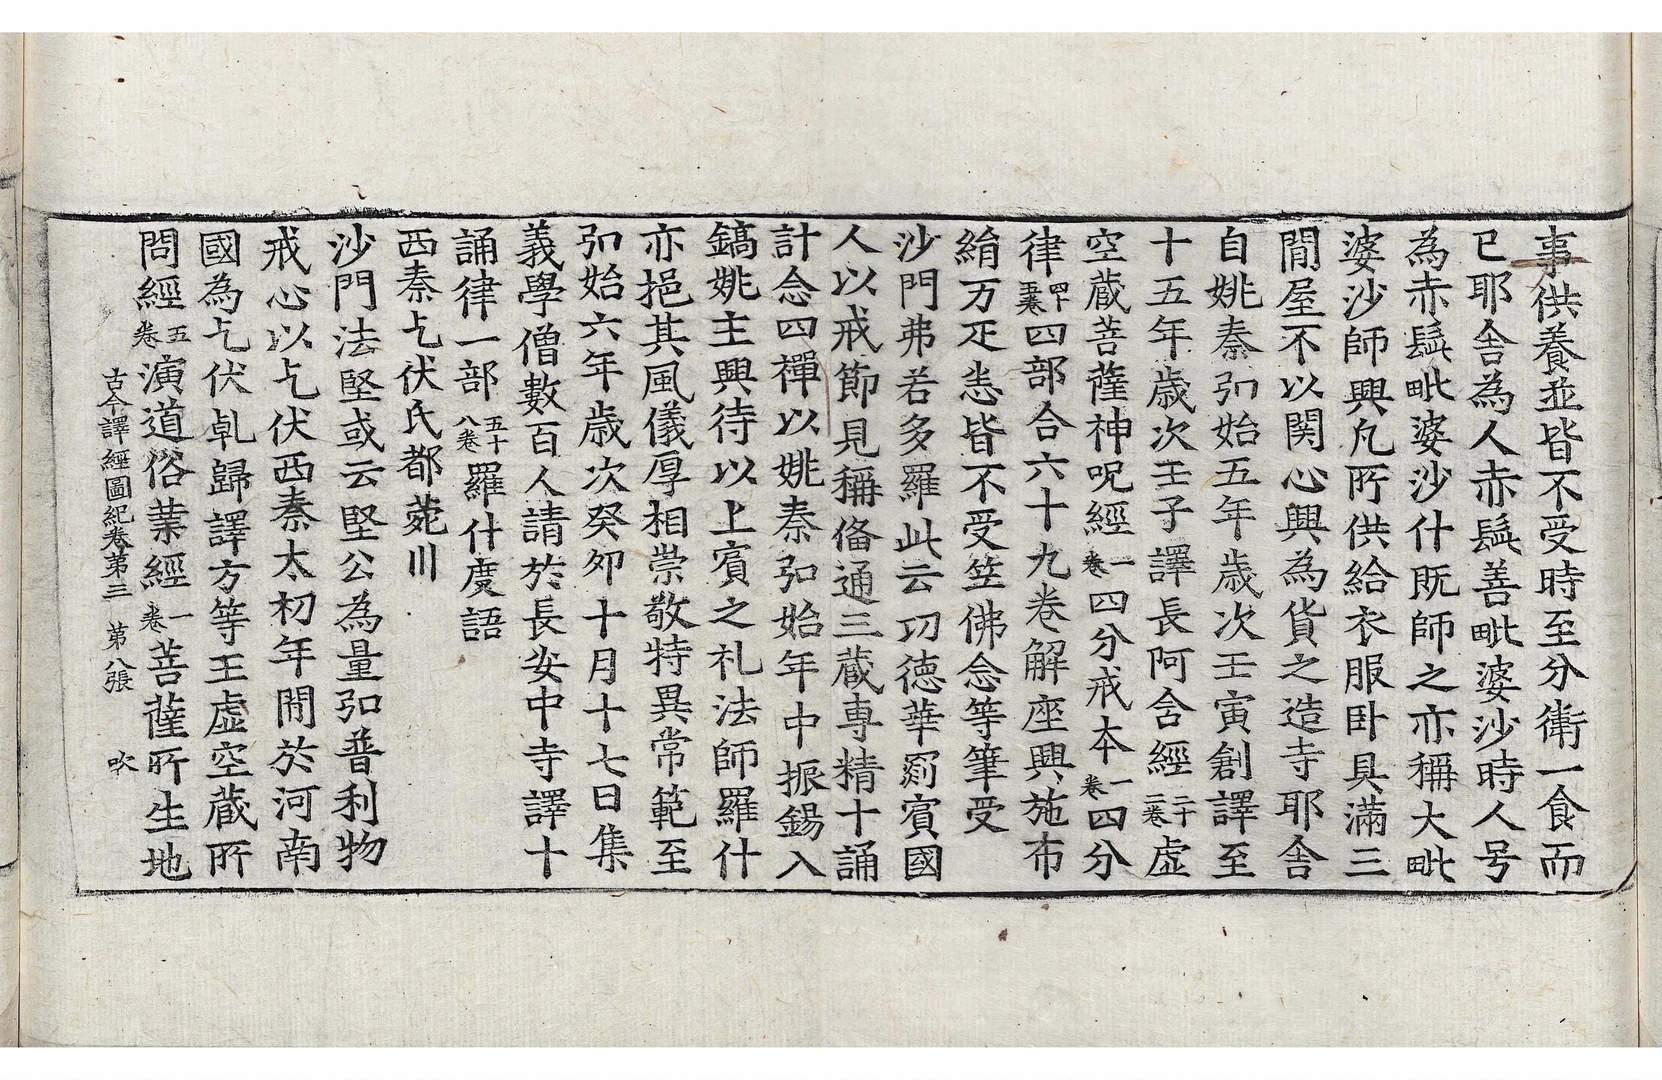 事供養並皆不受時至分衛一食而
已耶舍為人赤髭善毗婆沙時人号
為赤髭毗婆沙什既師之亦稱大毗
婆沙師興凡所供給衣服卧具滿三
閒屋不以関心興為貨之造寺耶舍
自姚秦弘始五年歲次壬寅創譯至
十五年歲次壬子譯長阿含經二十二卷虛
空藏菩薩神呪經一卷四分戒本一卷四分
律四十五卷四部合六十九卷解座興施布
絹万疋悉皆不受笠佛念等筆受
沙門弗若多羅此云功德華罽賓國
人以戒節見稱俻通三藏專精十誦
計念四禪以姚秦弘始年中振錫入
鎬姚主興待以上賓之礼法師羅什
亦挹其風儀厚相崇敬特異常範至
弘始六年歲次癸夘十月十七日集
義學僧數百人請於長安中寺譯十
誦律一部五十八卷羅什度語
西秦乞伏氏都菀川
沙門法堅或云堅公為量弘普利物
戒心以乞伏西秦太初年間於河南
國為乞伏乹歸譯方等王虛空藏所
問經五卷演道俗業經一卷菩薩所生地
古今譯經圖紀卷第三 第八張 吹